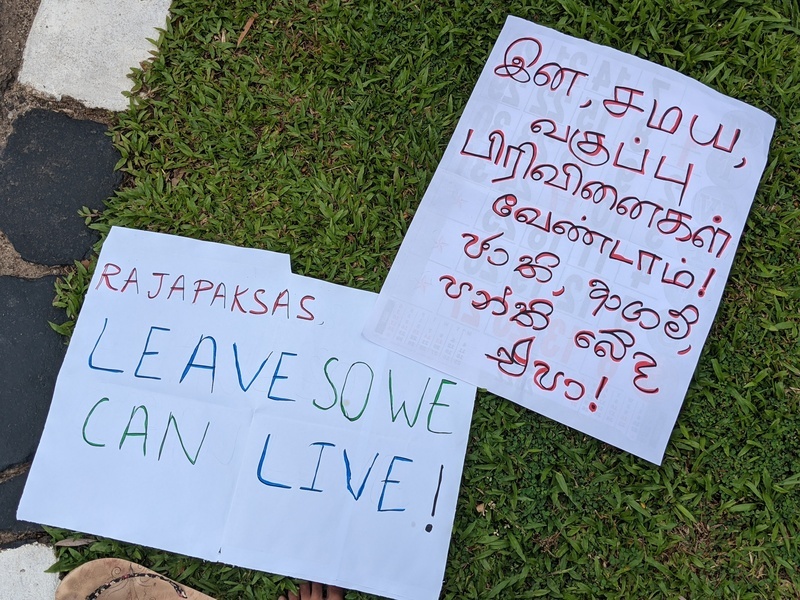 RAJAPAKSAS,
LEAVE SO WE
CAN LIVE!
இன, சமய,
வகுப்பு
பிரிவினைகள்
வேண்டாம்!
ජාති, ආගම්,
පන්ති බේද
එපා!